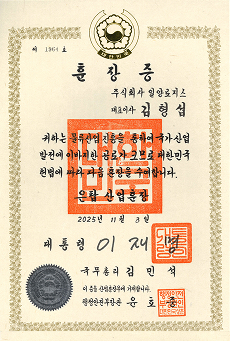 제 1964 호
훈장증
주식회사 일양로지스
대표이사 김형섭
귀하는 물류산업진흥을 통하여 국가산업
발전에 이바지한 공로가 크므로 대한민국
헌법에 따라 다음 훈장을 수여합니다.
은탑산업훈장
2025년 11월 3일
대통령 이재명
국무총리 김민석
이 증을 산업훈장부에 기재합니다.
행정안전부장관 윤호중